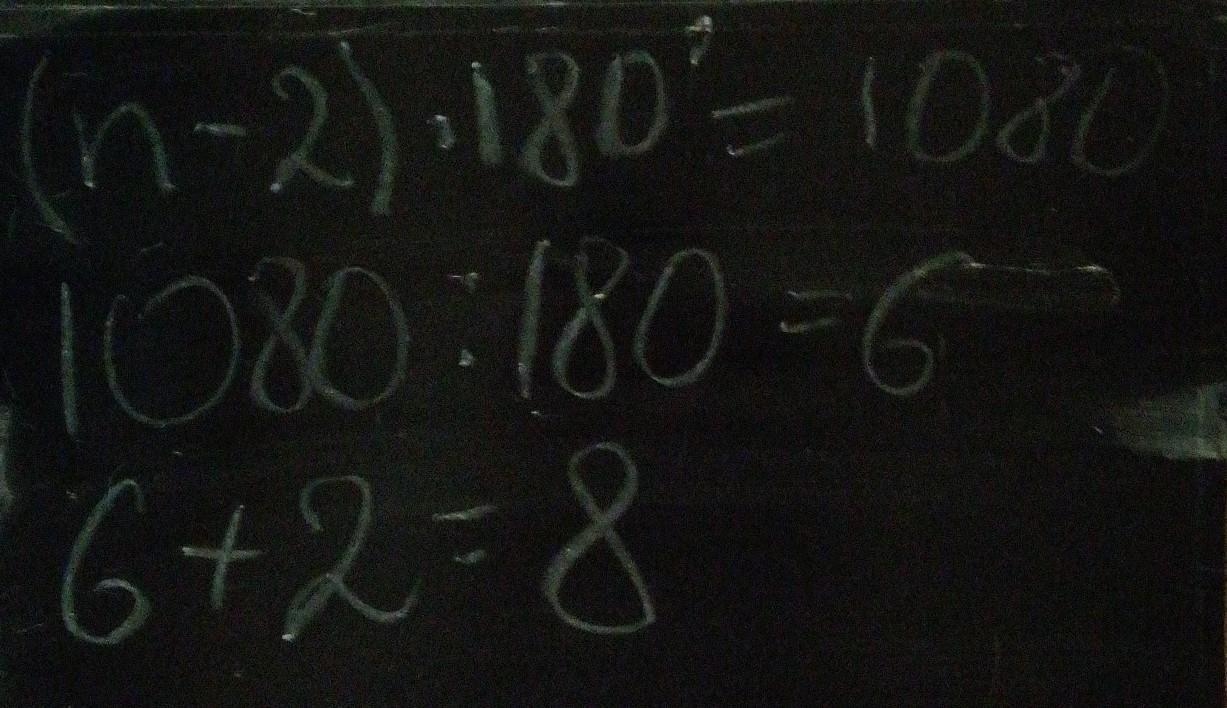 (n-2)·180°=1080
1080:180=6
6+2=8